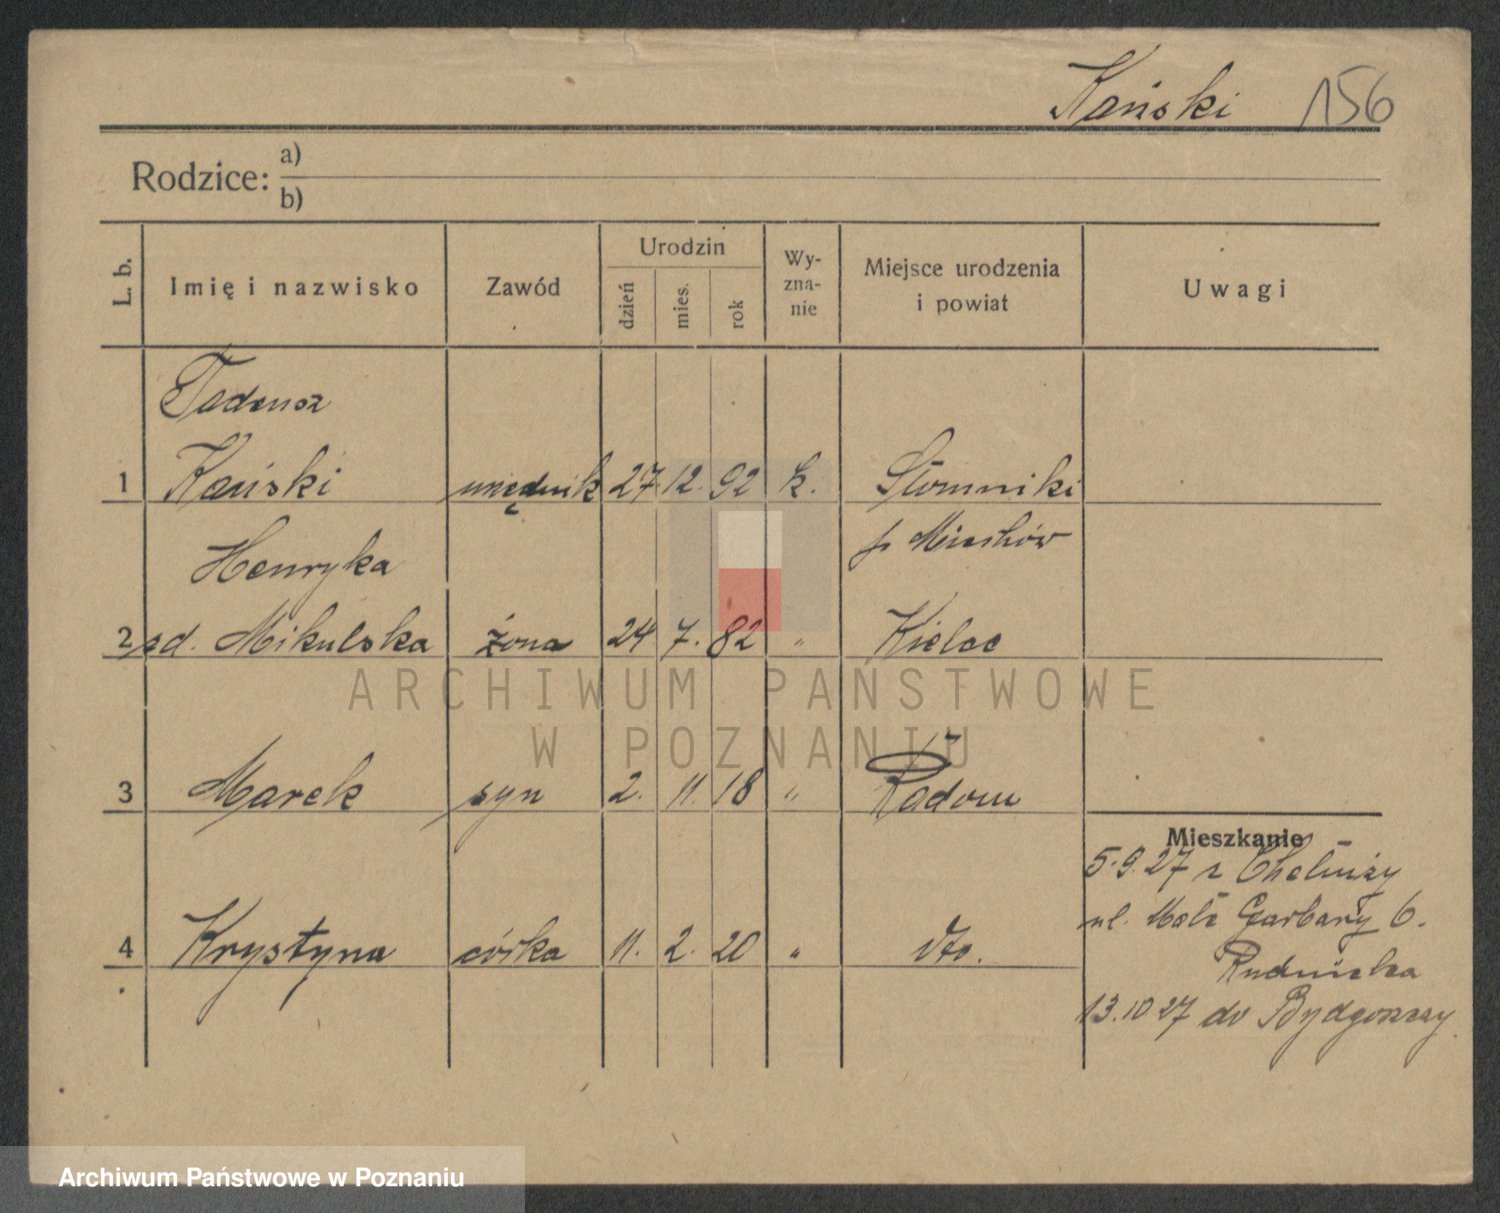 Kański 156
Rodzice: a)
b)
L. b. Imię i nazwisko Zawód Urodzin dzień mies. rok Wy-zna-nie Miejsce urodzenia i powiat Uwagi
Tadeusz
1 Kański urzędnik 27. 12. 92 k. Słomniki
Henryka p Miechów
2 zd. Mikulska żona 24 7. 82 " Kielce
ARCHIWUM PAŃSTWOWE
W POZNANIU
3 Marek syn 2. 11. 18 " Radom
Mieszkanie
5.9.27 z Chełmży
ul. Małe Garbary 6.
Rudnicka
4 Krystyna córka 11. 2. 20 " dto.
13.10 27 do Bydgoszczy
Archiwum Państwowe w Poznaniu